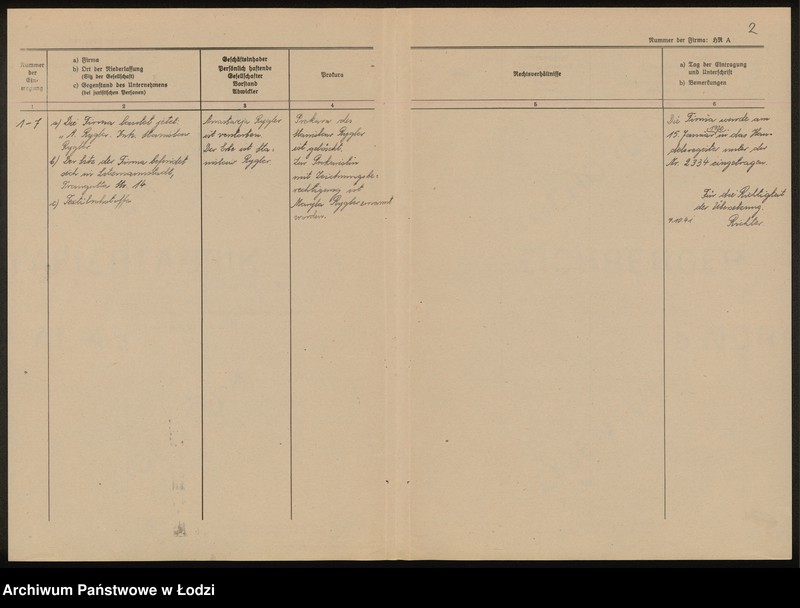 2
Nummer der Firma: HR A
Nummer
der
Ein-
tragung
a) Firma
b) Ort der Niederlassung
(Sitz der Gesellschaft)
c) Gegenstand des Unternehmens
(bei juristischen Personen)
Geschäftsinhaber
Persönlich haftende
Gesellschafter
Vorstand
Abwickler
Prokura
Rechtsverhältnisse
a) Tag der Eintragung
und Unterschrift
b) Bemerkungen
1
2
3
4
5
6
1-7
a) Die Firma lautet jetzt
„A. Rygler. Inh.
Rygler
b) Der Sitz der Firma befindet
sich in Litzmannstadt,
No. 14
c)
Rygler
ist verstorben.
Der Erbe ist
Rygler
Prokura des
Rygler
ist gelöscht.
Zur Prokuristin
mit Zeichnungsbe-
rechtigung ist
Rygler ernannt
worden.
Die Firma wurde am
15. Januar in das Han-
delsregister unter der
Nr. 2334 eingetragen.
Für die Richtigkeit
der Übersetzung
Richter
Archiwum Państwowe w Łodzi